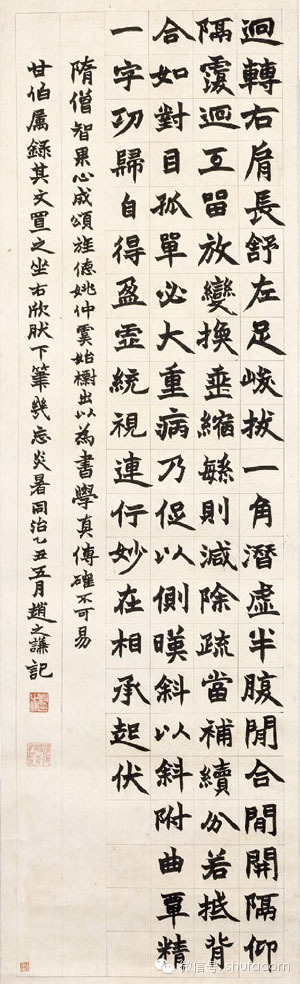 迴轉右肩長舒左足峻拔一角潛虛半腹間合間開隔仰
隔覆迴互留放變換垂縮繇則減除疏當補續分若抵背
合如對目孤單必大重病乃促以側映斜以斜附曲覃精
一字功歸自得盈虛統視連行妙在相承起伏
隋僧智果心成頌旌德姚仲虞始檢出以為書學真傳確不可易
甘伯屬錄其文置之坐右欣肰下筆幾忘炎暑同治乙丑五月趙之謙記
微信号 shufacom